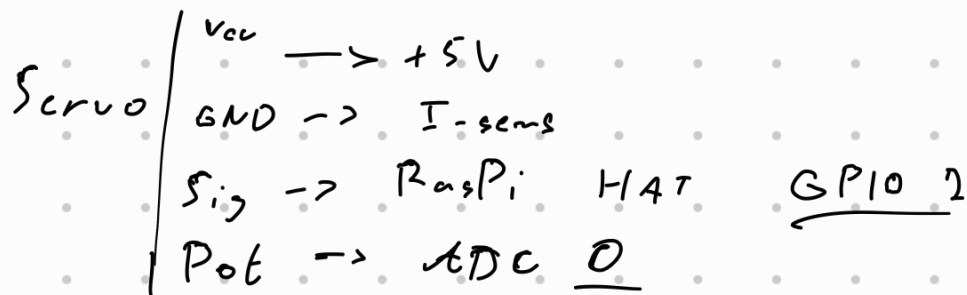 Servo
Vcc → +5V
GND -> I-sens
Sig -> RasPi HAT GPIO 2
Pot -> ADC 0